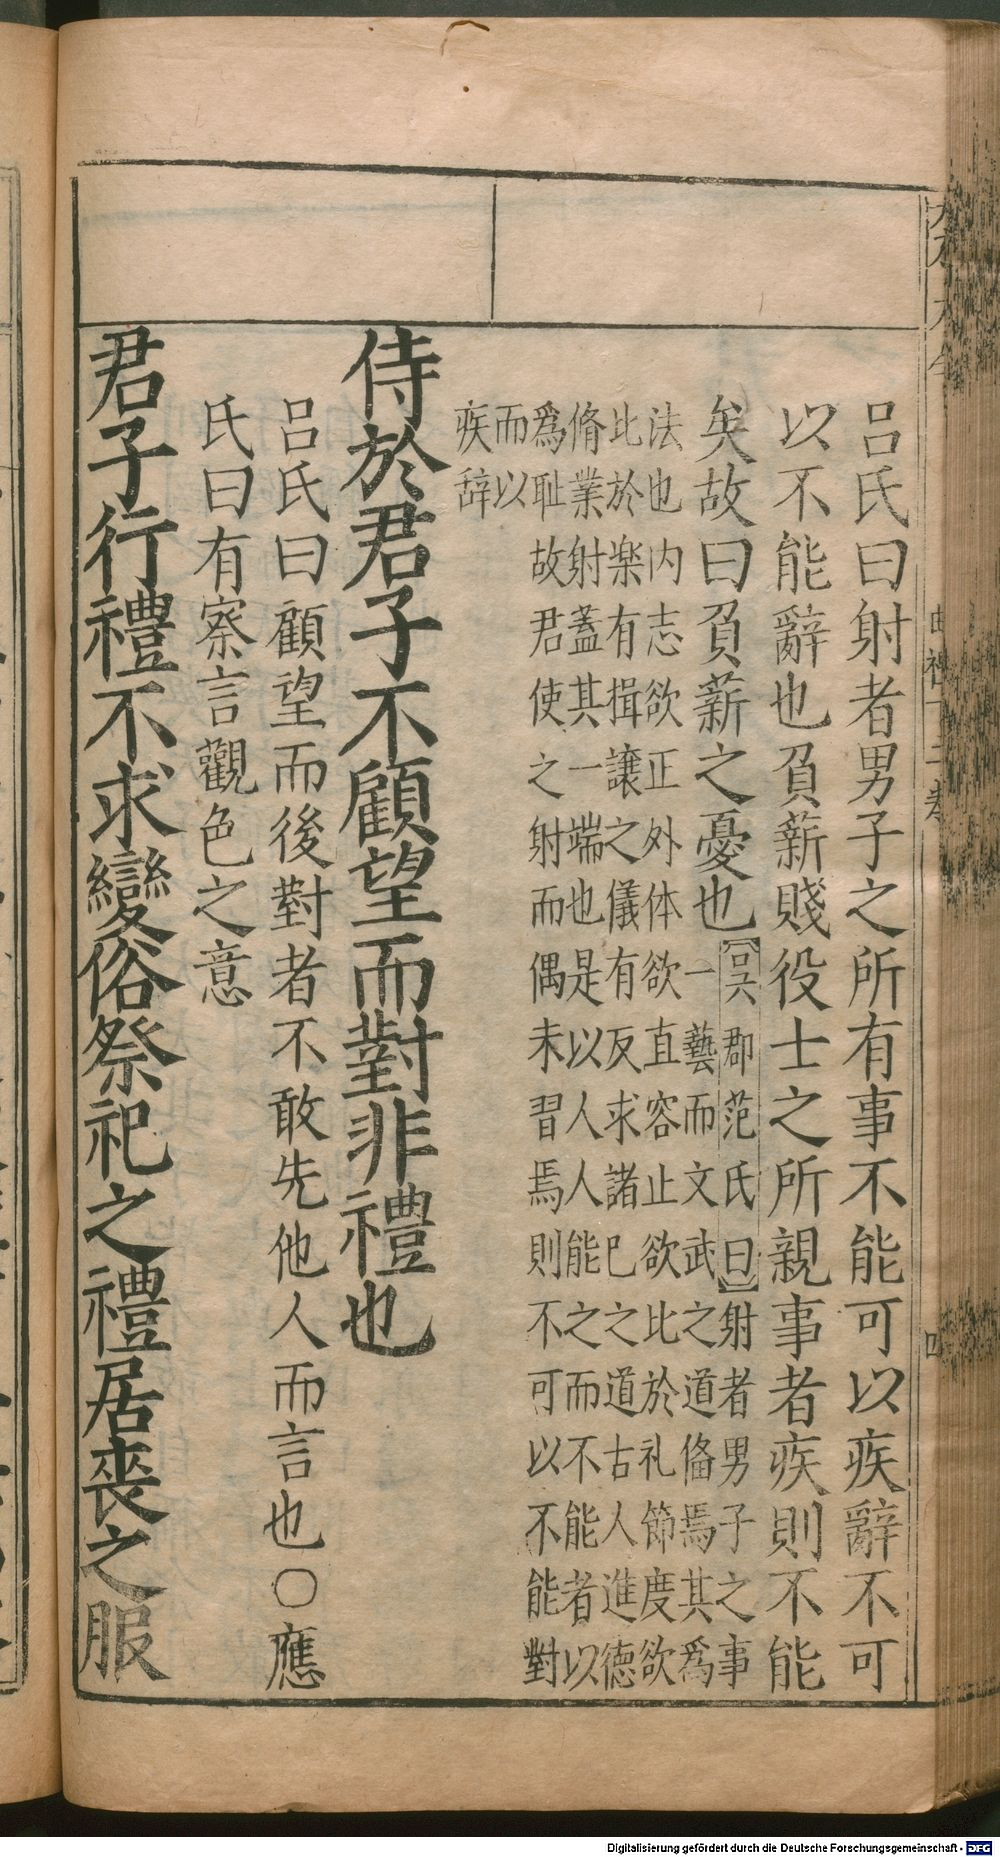 呂氏曰射者男子之所有事不能可以疾辭不可
以不能辭也負薪賤役士之所親事者疾則不能
矣故曰負薪之憂也
【吳郡范氏曰】射者男子之事
一藝而文武之道俻焉其爲
法也内志欲正外体欲直容止欲比於礼節度欲
比於楽有揖讓之儀有反求諸己之道古人進徳
脩業射蓋其一端也是以人人能之而不能者以
爲耻故君使之射而偶未習焉則不可以不能對
而以
疾辞
侍於君子不顧望而對非禮也
呂氏曰顧望而後對者不敢先他人而言也○應
氏曰有察言觀色之意
君子行禮不求變俗祭祀之禮居喪之服
Digitalisierung gefördert durch die Deutsche Forschungsgemeinschaft - DFG